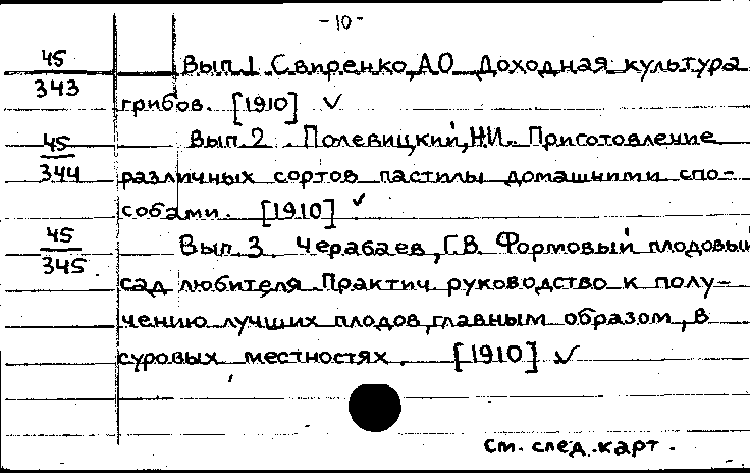 -10-
45 Вып. 1 Свиренко, А.О. Доходная культура
343 грибов. [1910] ✓
45 Вып. 2. Полевицкий, Н.И. Приготовление
344 различных сортов пастилы домашними спо-
собами. [1910] ✓
45 Вып. 3. Черабаев, Г.В. Формовый плодовый
345 сад любителя. Практич. руководство к полу-
чению лучших плодов, главным образом, в
суровых местностях. [1910] ✓
см. след. карт.